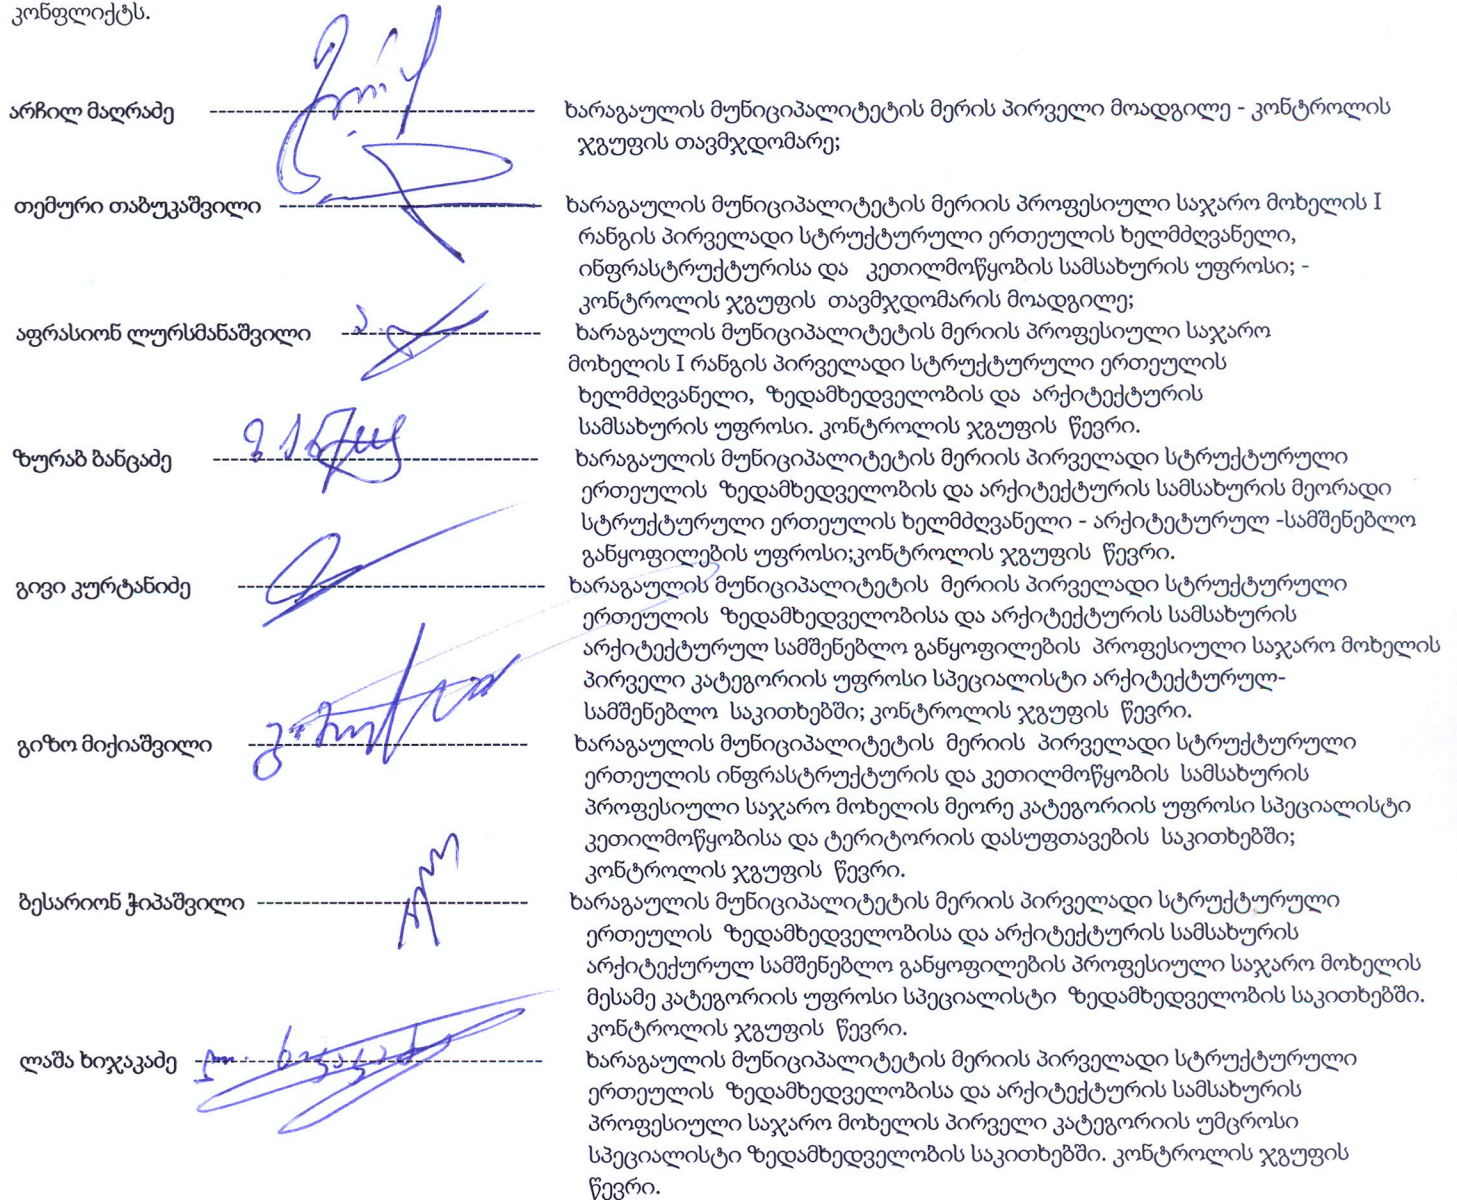 კონფლიქტს.
არჩილ მაღრაძე ---------------------------------- ხარაგაულის მუნიციპალიტეტის მერის პირველი მოადგილე - კონტროლის
ჯგუფის თავმჯდომარე;
თემური თაბუკაშვილი --------------------------- ხარაგაულის მუნიციპალიტეტის მერიის პროფესიული საჯარო მოხელის I
რანგის პირველადი სტრუქტურული ერთეულის ხელმძღვანელი,
ინფრასტრუქტურისა და კეთილმოწყობის სამსახურის უფროსი; -
კონტროლის ჯგუფის თავმჯდომარის მოადგილე;
აფრასიონ ლურსმანაშვილი --------------------- ხარაგაულის მუნიციპალიტეტის მერიის პროფესიული საჯარო
მოხელის I რანგის პირველადი სტრუქტურული ერთეულის
ხელმძღვანელი, ზედამხედველობის და არქიტექტურის
სამსახურის უფროსი. კონტროლის ჯგუფის წევრი.
ზურაბ ბანცაძე ---------------------------------- ხარაგაულის მუნიციპალიტეტის მერიის პირველადი სტრუქტურული
ერთეულის ზედამხედველობის და არქიტექტურის სამსახურის მეორადი
სტრუქტურული ერთეულის ხელმძღვანელი - არქიტეტურულ -სამშენებლო
განყოფილების უფროსი;კონტროლის ჯგუფის წევრი.
გივი კურტანიძე -------------------------------- ხარაგაულის მუნიციპალიტეტის მერიის პირველადი სტრუქტურული
ერთეულის ზედამხედველობისა და არქიტექტურის სამსახურის
არქიტექტურულ სამშენებლო განყოფილების პროფესიული საჯარო მოხელის
პირველი კატეგორიის უფროსი სპეციალისტი არქიტექტურულ-
სამშენებლო საკითხებში; კონტროლის ჯგუფის წევრი.
გიზო მიქიაშვილი ----------------------------- ხარაგაულის მუნიციპალიტეტის მერიის პირველადი სტრუქტურული
ერთეულის ინფრასტრუქტურის და კეთილმოწყობის სამსახურის
პროფესიული საჯარო მოხელის მეორე კატეგორიის უფროსი სპეციალისტი
კეთილმოწყობისა და ტერიტორიის დასუფთავების საკითხებში;
კონტროლის ჯგუფის წევრი.
ბესარიონ ჭიპაშვილი ---------------------------- ხარაგაულის მუნიციპალიტეტის მერიის პირველადი სტრუქტურული
ერთეულის ზედამხედველობისა და არქიტექტურის სამსახურის
არქიტექურულ სამშენებლო განყოფილების პროფესიული საჯარო მოხელის
მესამე კატეგორიის უფროსი სპეციალისტი ზედამხედველობის საკითხებში.
კონტროლის ჯგუფის წევრი.
ლაშა ხიჯაკაძე ------------------------------------ ხარაგაულის მუნიციპალიტეტის მერიის პირველადი სტრუქტურული
ერთეულის ზედამხედველობისა და არქიტექტურის სამსახურის
პროფესიული საჯარო მოხელის პირველი კატეგორიის უმცროსი
სპეციალისტი ზედამხედველობის საკითხებში. კონტროლის ჯგუფის
წევრი.